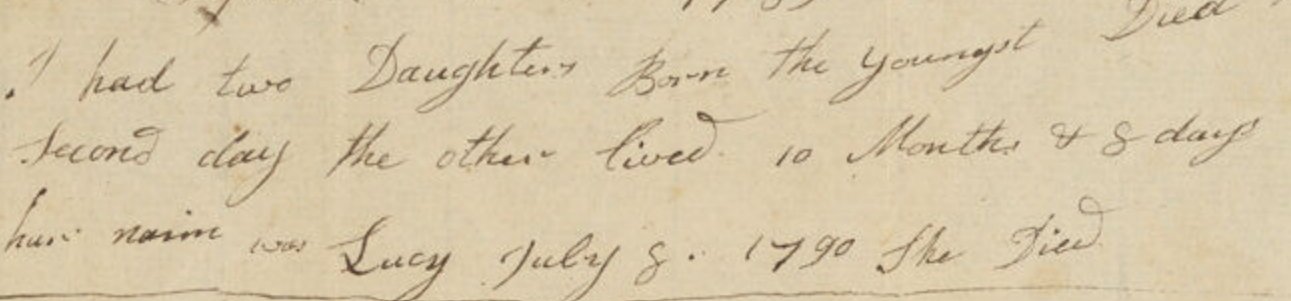 I had two Daughters Born the youngst Died
second day the other lived 10 Months & 8 days
hur naim was Lucy July 8. 1790 She Died